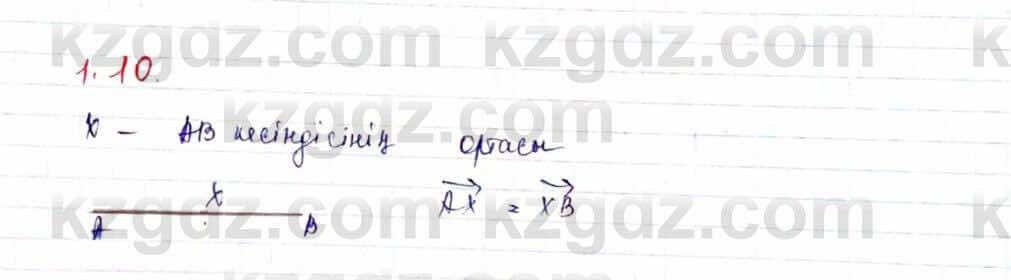 kzgdz.com kzgdz.com k
1.10.
kzgdz.com
X – AB кесіндісінің ортасы
X
kzgdz.com kzgdz.com k
A B AX = XB
kzgdz.com